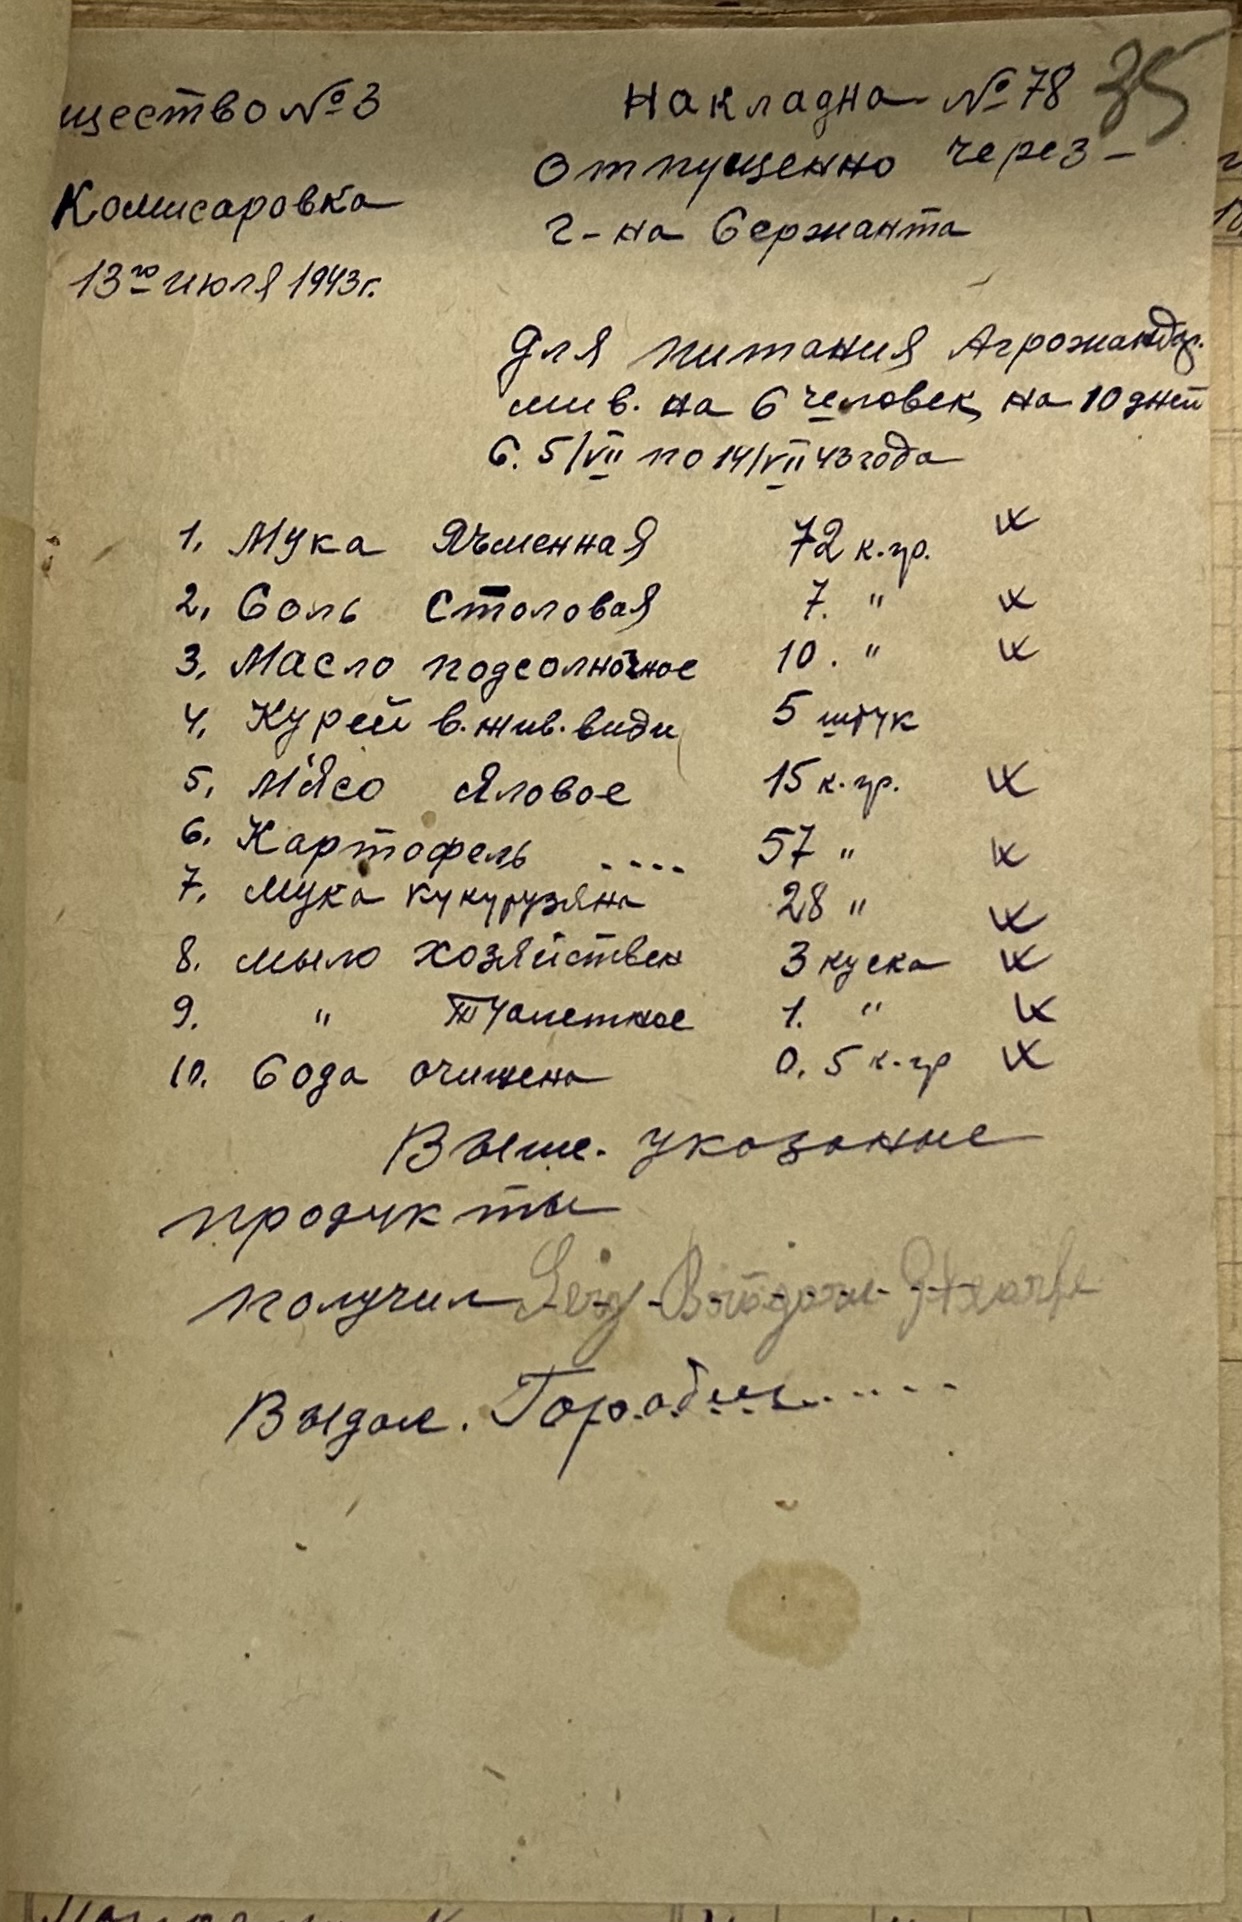 щество № 3
Накладна № 78
35
Отпущенно через –
Комисаровка
г-на Сержанта
13го июля 1943 г.
Для питания Агрожанд.
на 6 человек на 10 дней
С. 5/VII по 14/VII 43 года
1. Мука Ячменная 72 к.гр.
2. Соль Столовая 7. "
3. Масло подсолночное 10. "
4. Курей в. жив. види 5 штук
5. М'ясо Яловое 15 к.гр.
6. Картофель .... 57 "
7. Мука кукурузяна 28 "
8. Мыло хозяйствен 3 куска
9. " Туалетное 1. "
10. Сода очищена 0,5 к-гр
Выше. указаные
продукты
получил
Выдал.